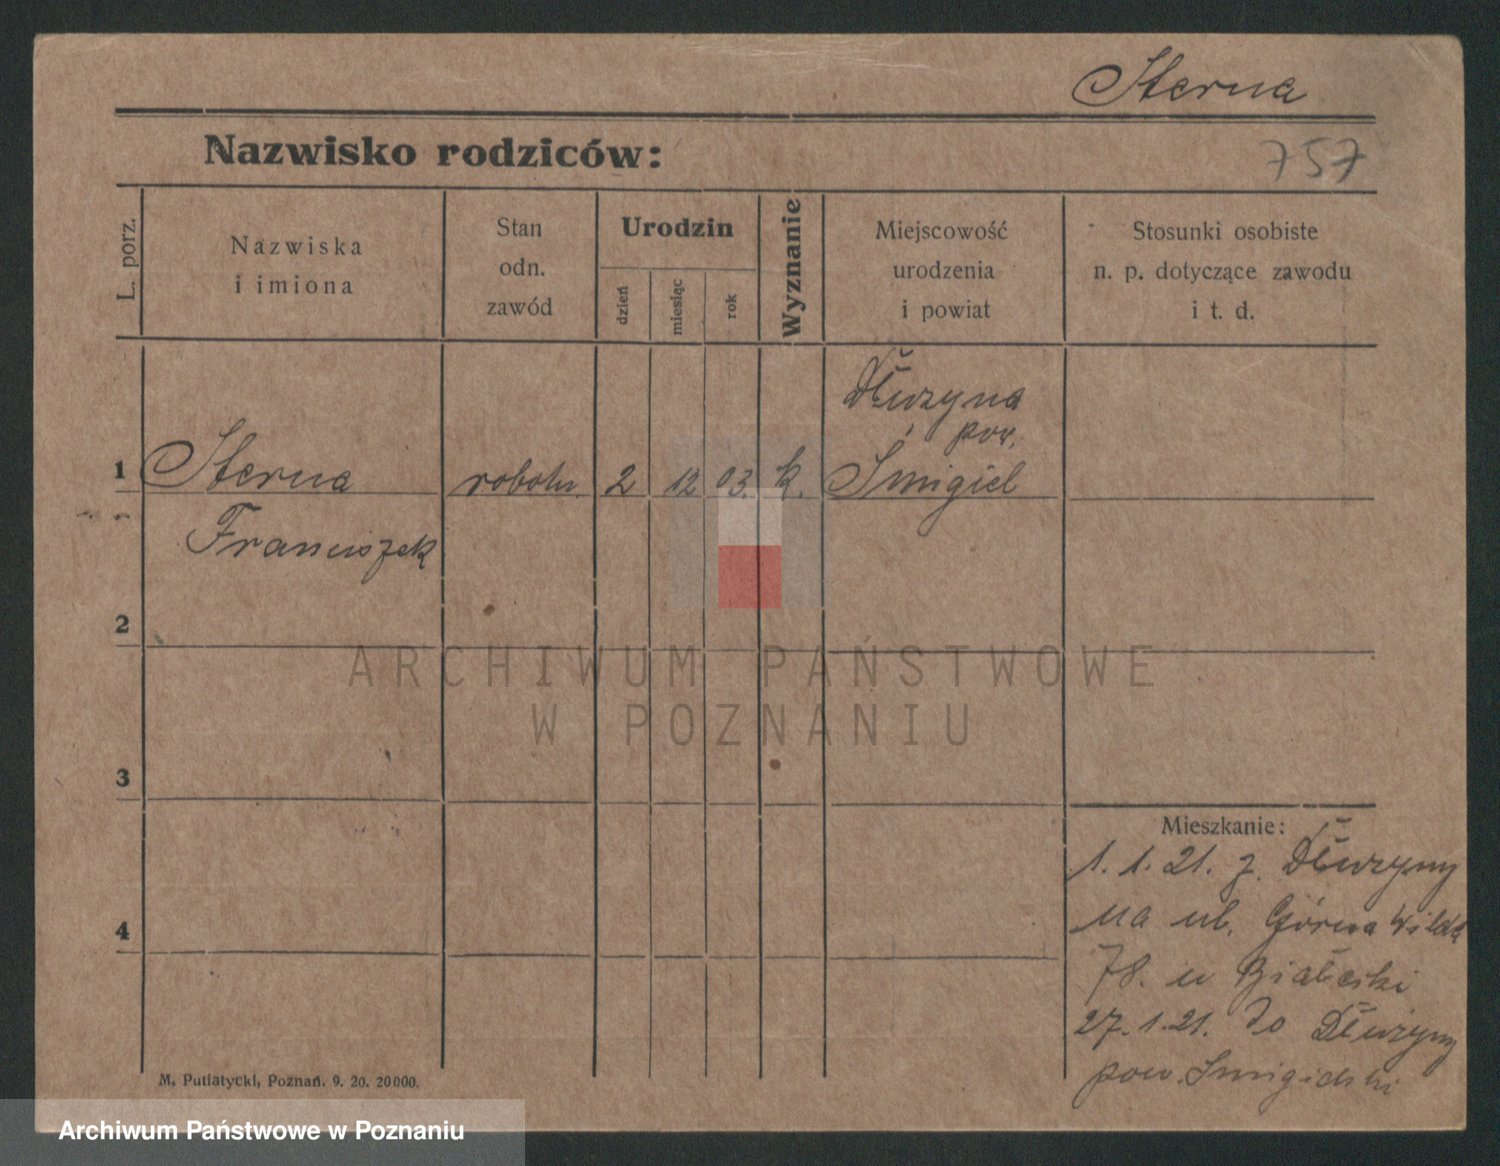 Sterna
Nazwisko rodziców:
757
L. porz.
Nazwiska
i imiona
Stan
odn.
zawód
Urodzin
dzień
miesiąc
rok
Wyznanie
Miejscowość
urodzenia
i powiat
Stosunki osobiste
n. p. dotyczące zawodu
i t. d.
Dłużyna
pow.
1 Sterna robotn. 2 12 03. k. Śmigiel
Franciszek
2
3
4
Mieszkanie:
1. 1. 21. z Dłużyny
na ul. Górna Wilda
78. u Białecki
27. 1. 21. do Dłużyny
pow. Śmigielski
M. Putiatycki, Poznań. 9. 20. 20000.
ARCHIWUM PAŃSTWOWE
W POZNANIU
Archiwum Państwowe w Poznaniu